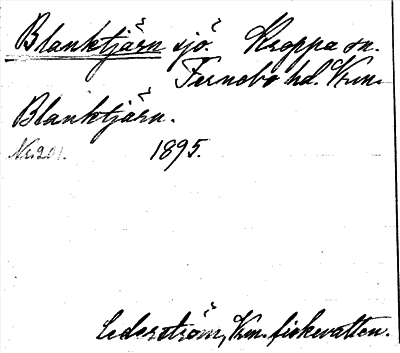 Blanktjärn sjö. Kroppa sn.
Fernebo hd. Vrm.
Blanktjärn.
Nr. 201. 1895.
Cederström, Vrm. fiskevatten.